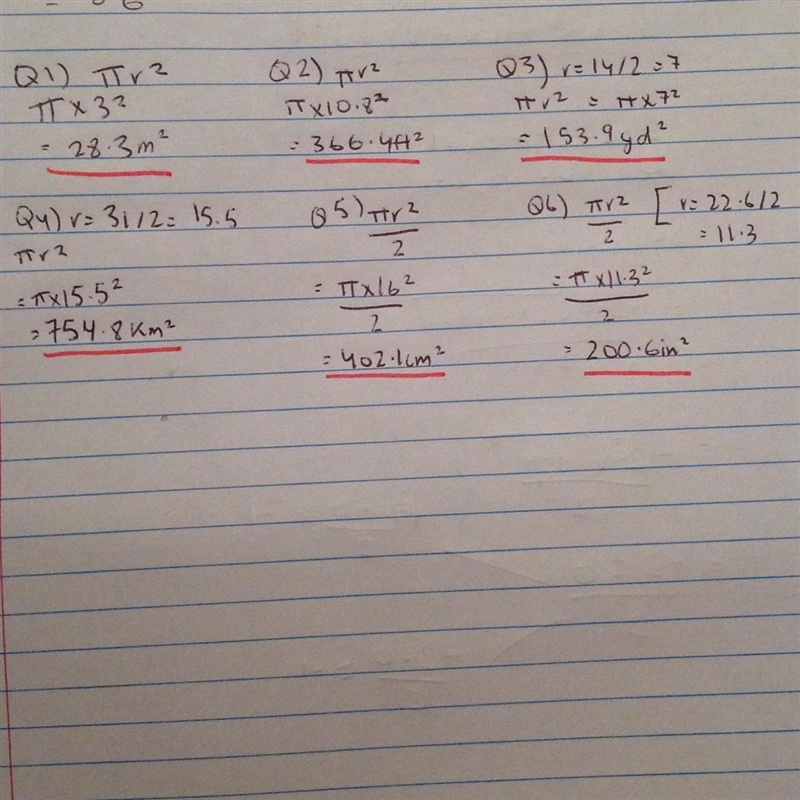 Q1) πr²
π×3²
= 28.3m²
Q2) πr²
π×10.8²
= 366.4ft²
Q3) r=14/2=7
πr² = π×7²
= 153.9yd²
Q4) r=31/2= 15.5
πr²
=π×15.5²
=754.8Km²
Q5) πr²
2
= π×16²
2
=402.1cm²
Q6) πr² [r=22.6/2
2 =11.3
=π×11.3²
2
= 200.6in²